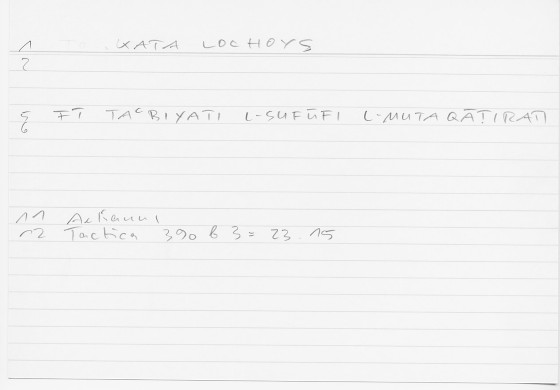 1 KATA LOCHOYS
2
5 FĪ TAʿBIYATI L-SUFŪFI L-MUTAQĀṬIRATI
6
11 Aeliani
12 Tactica 390 b 3 = 23.15